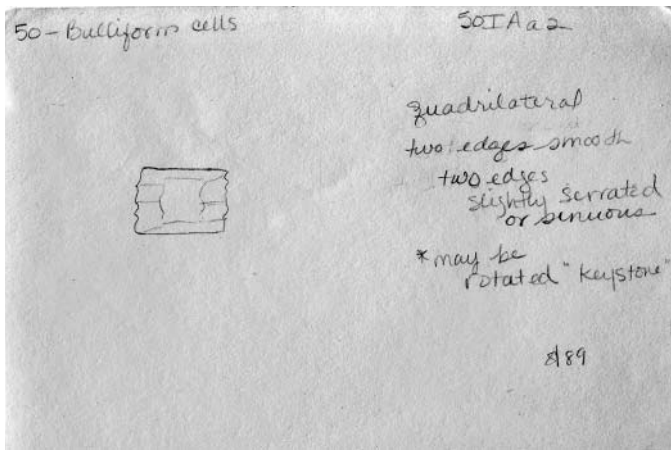 50-Bulliform cells
50IAa2
quadrilateral
two edges smooth
two edges
slightly serrated
or sinuous
*may be
rotated "keystone"
8/89